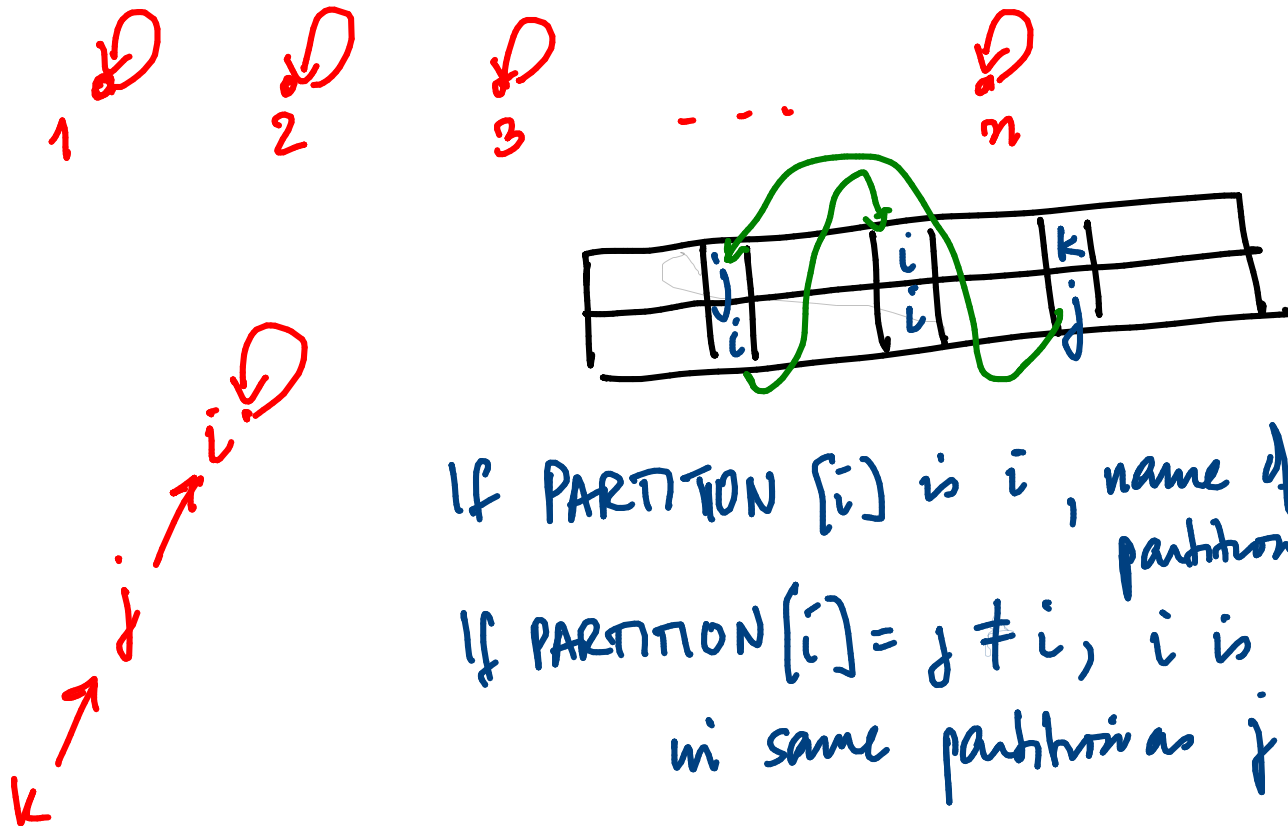 1 2 3 - - - n
j i k
i i j
i
j
k
If PARTITION [i] is i, name of
partition
If PARTITION [i] = j ≠ i, i is
in same partition as j